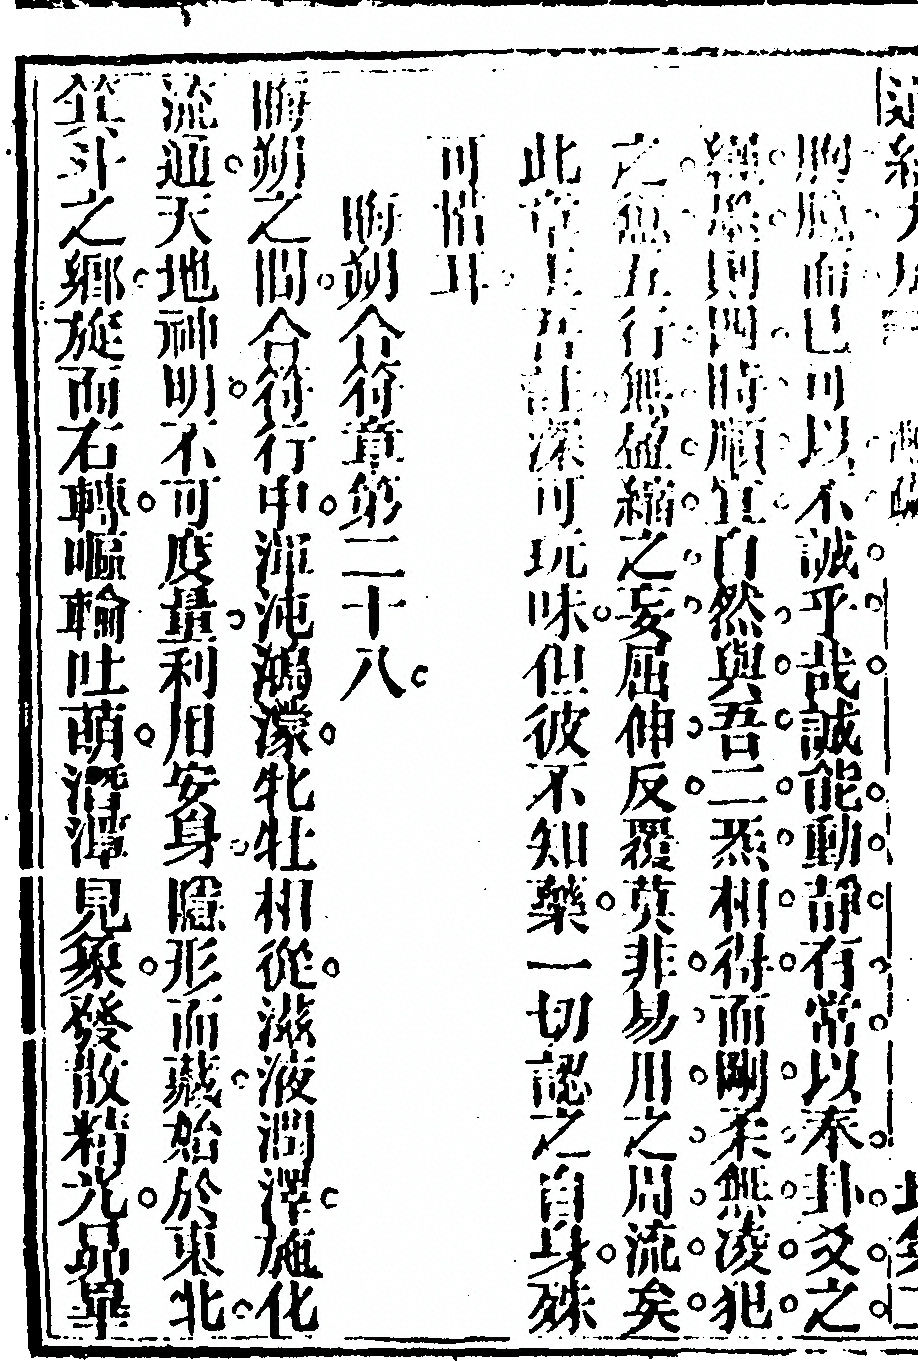 胸臆而已可以不誠乎哉誠能動靜有常以奉卦爻之
繩墨則四時順宜自然與吾二炁相得而剛柔無凌犯
之愆五行無盈縮之妄屈伸反覆莫非易用之周流矣
此章主吾註深可玩味但彼不知藥一切認之自身殊
可惜耳
晦朔合符章第二十八
晦朔之間合符行中渾沌鴻濛牝牡相從滋液潤澤施化
流通天地神明不可度量利用安身隱形而藏始於東北
箕斗之鄉旋而右轉嘔輪吐萌潛潭見象發散精光昴畢